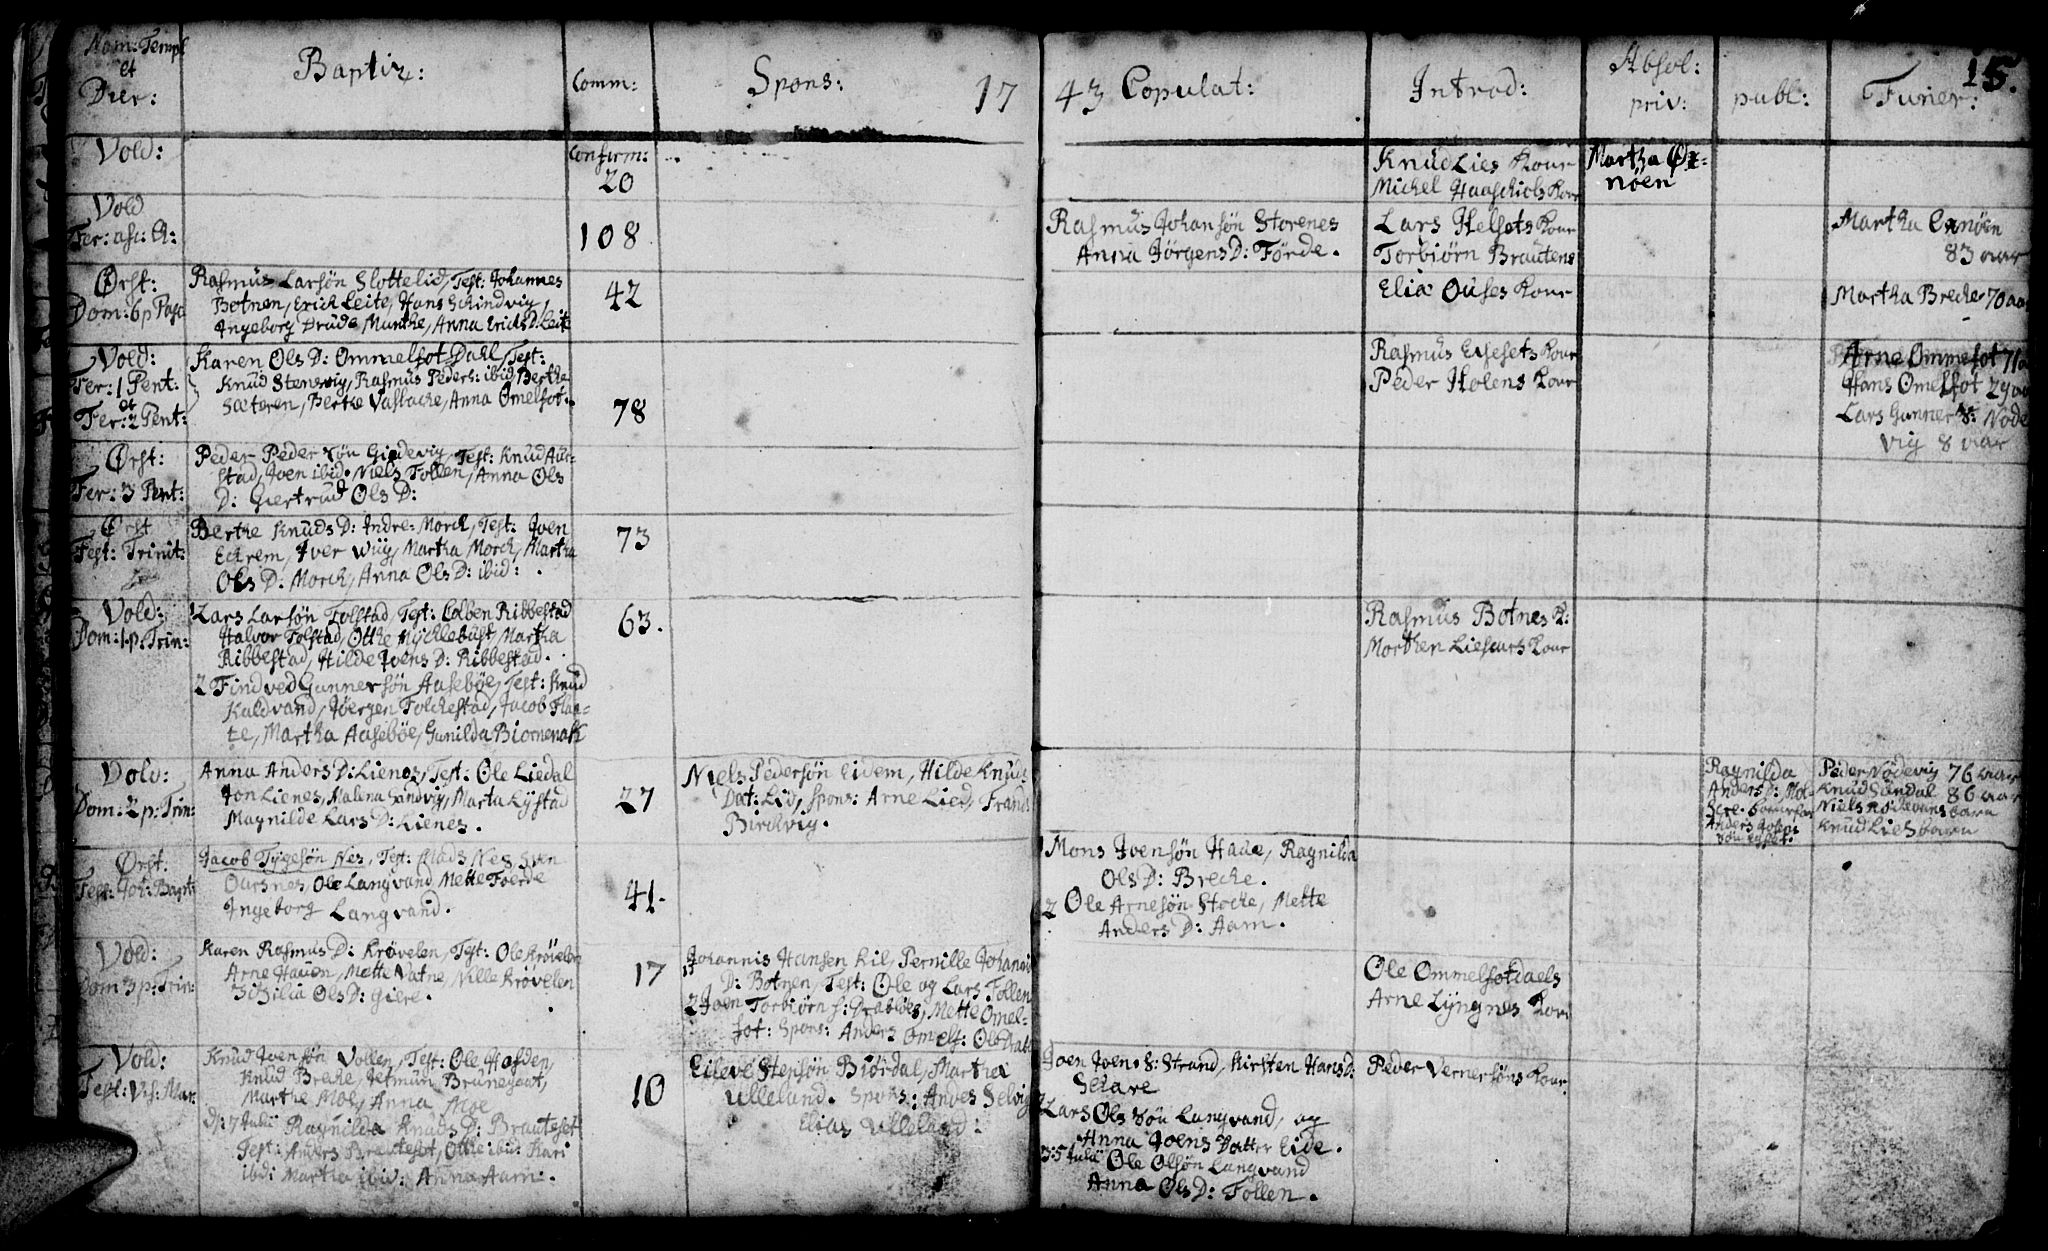 Nom: Templ
et
Dier:
Baptiz:
Comm:
Spons:
17
43 Copulat:
Introd:
Absol:
priv:
publ:
Funer:
15.
Vold:
Confirm:
20
Knud Lies Kone
Michel Haaschiols Kone
Martha Øx=
nöen
Vold
Fer: asc:
108
Rasmus Johansön Storenes
Anna Jörgens D: Förde.
Lars Helsets Kone
Torbiörn Brautens
Martha Exnöen
83 aar
Ørst:
Dom: 6 p Pasc
Rasmus Larsön Slottelid, Test: Johannes
Botnen, Erich Leite, Hans Schindvig,
Ingeborg Drude Munthe, Anna Erichs D. Leite
42
Eliæ Ouses Kone
Martha Breche 70 aar
Vold:
Fer: 1 Pent:
et
Fer: 2 Pent:
Karen Ols D: Ommelfot Dahl, Test:
Knud Stensvig, Rasmus Peders: ibid, Berthe
Sæteren, Berthe Vaslache, Anna Omelfot.
78
Rasmus Kone
Peder Holens Kone
Arne Ommefot 71
Hans Omelfot 29 aar
Lars Gunner S: Nöde
vig 8 aar
Ørst:
Fer: 3 Pent:
Peder Peder Sön Giedevig, Test: Knud Aur=
stad, Joen ibid. Niels Follen, Anna Ols
D: Giertrud Ols D:
Ørst
Fest: Trinit:
Berthe Knuds D: Indre: Morch, Test: Joen
Echrem, Iver Wiig, Martha Morch, Martha
Ols D: Morch, Anna Ols D: ibid:
73
Vold:
Dom: 1 p: Trin:
1 Lars Larsön Folstad, Test: Colben Ribbestad
Halvor Folstad, Otthe Mycklebust, Martha
Ribbestad, Hilde Joens D: Ribbestad.
2 Findved Gunnersön Aasebøe, Test: Knud
Kaldvand, Jöergen Folchestad, Jacob Flaa=
te, Martha Aasebøe, Gunilda Biornenak
63.
Rasmus Botnes K:
Morthen Kone
Vold:
Dom: 2 p: Trin:
Anna Anders D: Lienes, Test: Ole Liedal
Jon Lienes, Malena Sandvig, Marta Lystad
Magnilde Lars D: Lienes.
27
Niels Pedersön Eidem, Hilde Knuds
Dat: Lid, Spons: Arne Lied, Frands
Birckvig.
Ragnilda
Anders D: Mol=
Anders
Peder Nödevig 76 aar
Knud Sundal 86 aar
Niels barn
Knud Lies barn
Ørst.
Fest: Joh: Bapt:
Jacob Tygesön Nes, Test: Mads Nes, Sven
Oursnes, Ole Langvand, Mette Foerde
Ingeborg Langvand.
41.
1 Mons Joensön Haae, Ragnilda
Ols D: Breche.
2 Ole Arnesön Stocke, Mette
Anders D: Aam.
Vold:
Dom 3 p: Trin:
Karen Rasmus D: Krövelen, Test: Ole Krövelen
Arne Hauen, Mette Vatne, Nille Krövelen
Ols D: Giere.
17
Johannis Hansen Kil, Pernille Johanis
D: Botnen, Test: Ole og Lars Follen
2 Joen Torbiörn S: Drabløes, Mette Omel=
fot: Spons: Anders Omelf: Ole Drab
Ole Ommelfotdaels
Arne Lyngnes Kone
Vold:
Fest: Vis: Mar:
Knud Joensön Vollen, Test: Ole Hafden,
Knud Breche, Jetmun Brunegaat,
Marthe Moe, Anna Moe
d: 7 Julii Ragnilda Knuds D: Brauteset
Test: Anders Brautesèt, Otthe ibid: Kari
ibid: Martha ibid: Anna Aam.
10
Eileve Stensön Biördal, Martha
Ulleland. Spons: Anders Selvig
Elias Ulleland:
Joen Joens S: Strand, Kirsten Hans D:
Schare
2 Lars Ols Sön Langvand, og
Anna Joens Datter Eide.
3: 5 Julii Ole Olsön Langvand
Anna Ols D: Follen.
Peder Vernersöns Kone